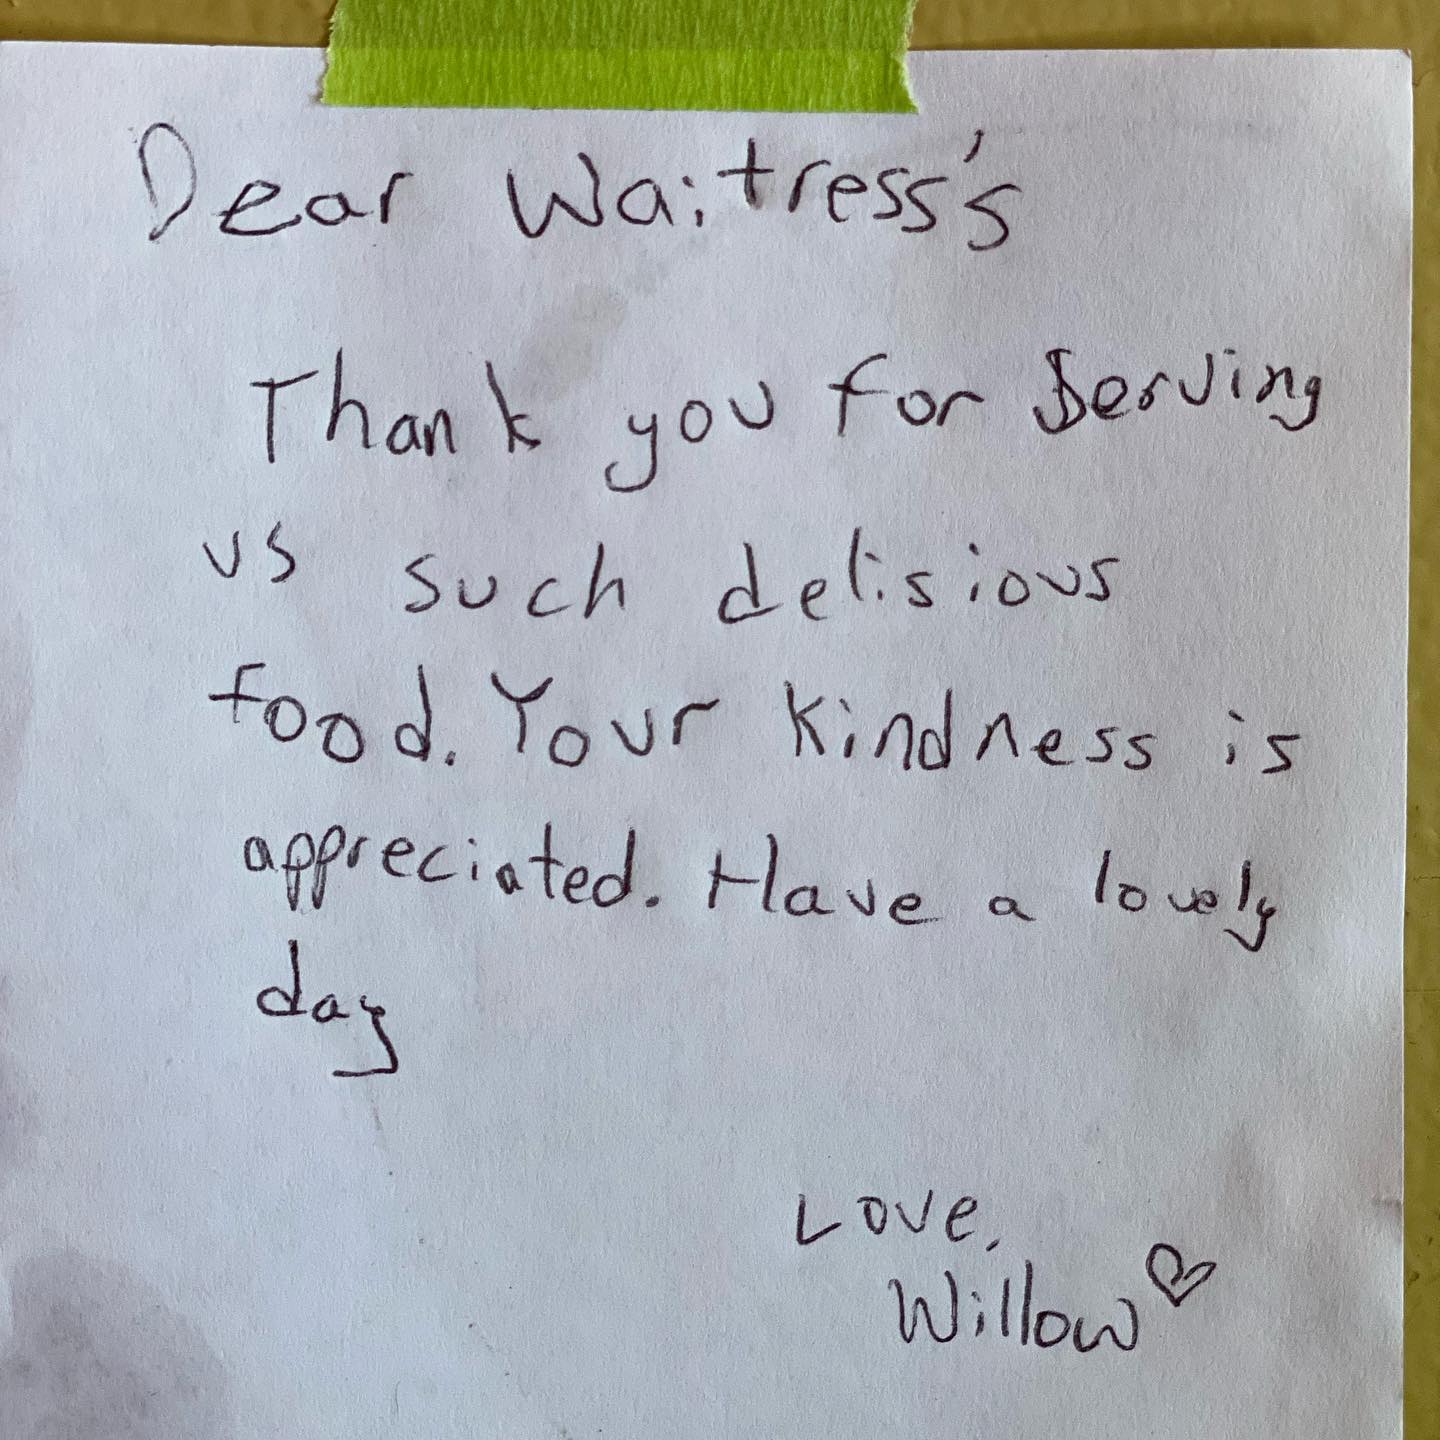 Dear Waitress's
Thank you for Serving
us such delisious
food. Your kindness is
appreciated. Have a lovely
day
Love,
Willow